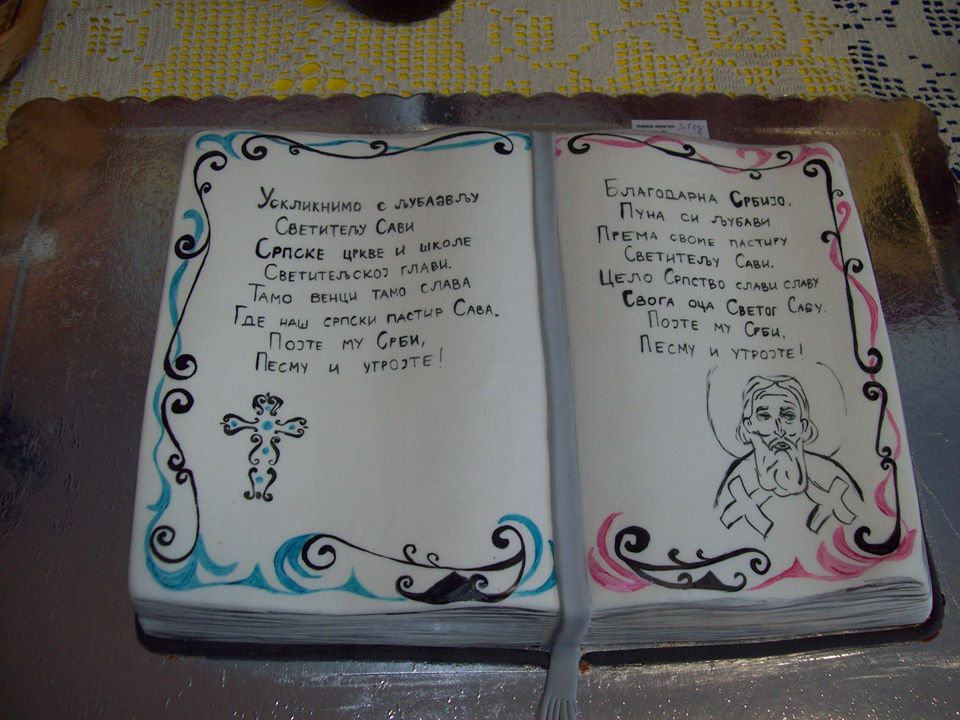 Ускликнимо с љубављу
Светитељу Сави
Српске цркве и школе
Светитељској глави.
Тамо венци тамо слава
Где наш српски пастир Сава.
Појте му Срби,
Песму и утројте!
Благодарна Србијо,
Пуна си љубави
Према своме пастиру
Светитељу Сави.
Цело Српство слави славу
Свога оца Светог Саву.
Појте му Срби,
Песму и утројте!